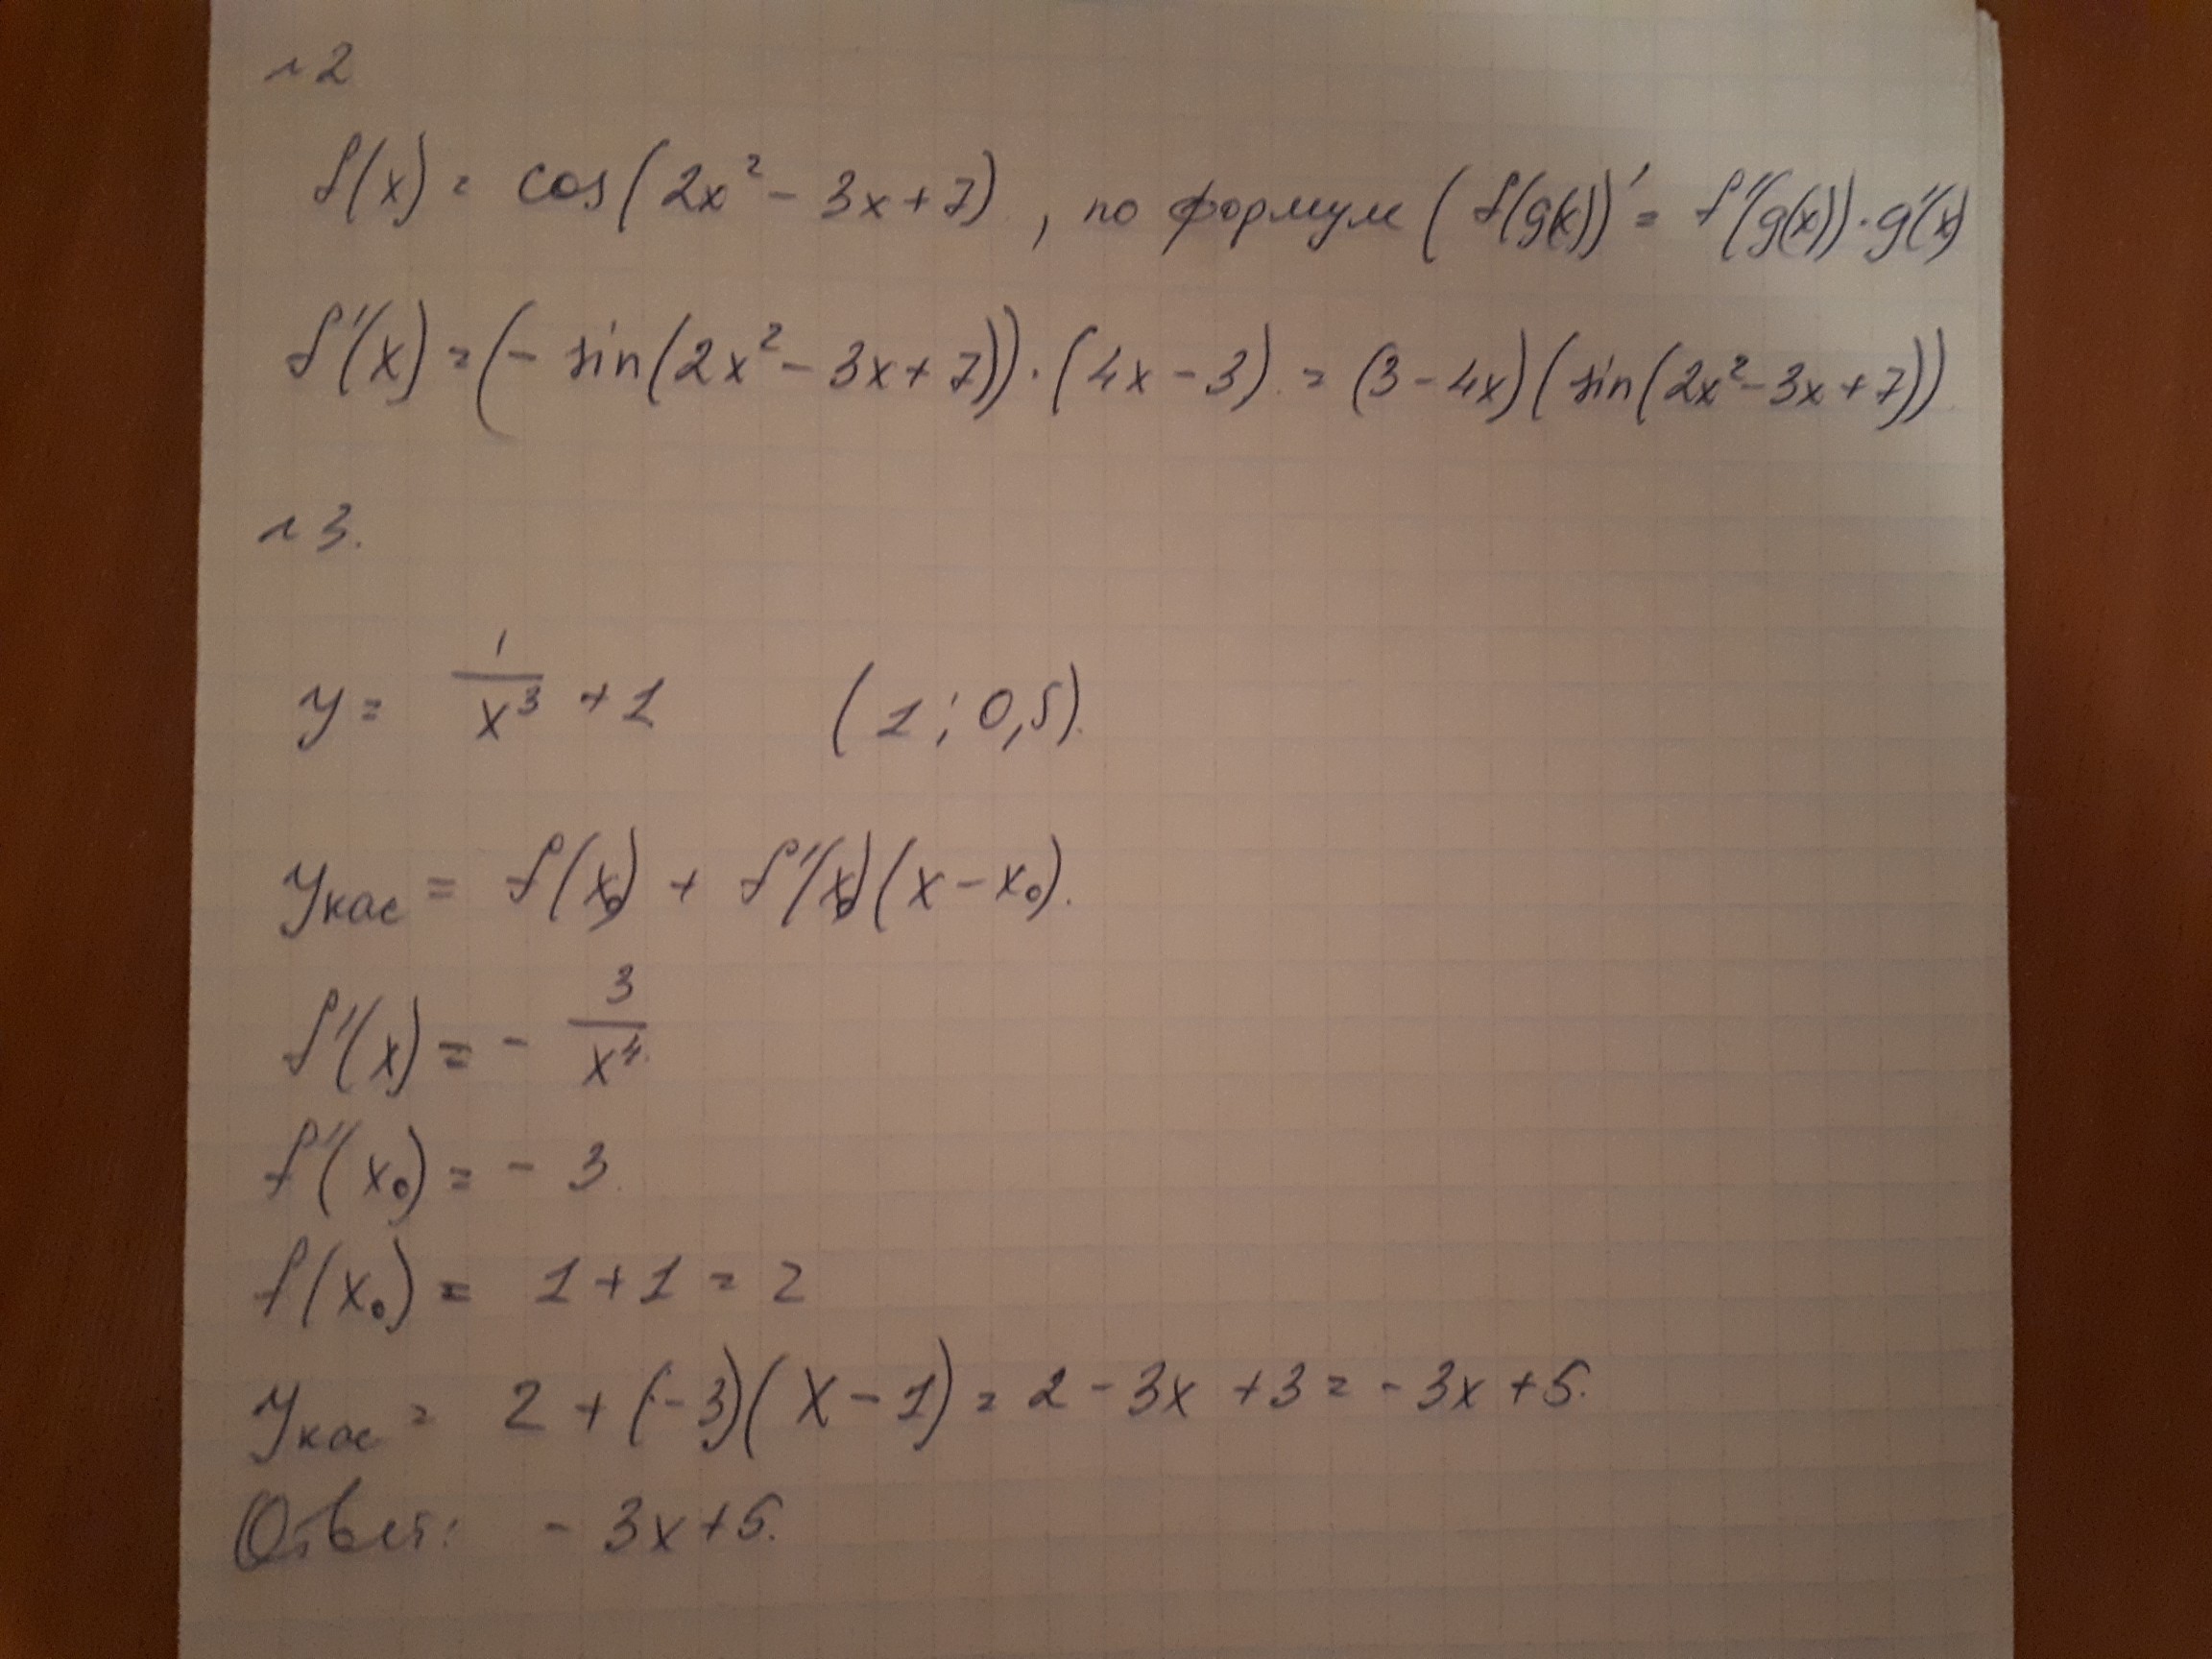 №2
f(x) = cos(2x² - 3x + 7), по формуле (f(g(x))' = f'(g(x))·g'(x)
f'(x) = (- sin(2x² - 3x + 7))·(4x - 3) = (3 - 4x)(sin(2x² - 3x + 7))
№3.
y = 1/x³ + 1 (1; 0,5).
yкас = f(x₀) + f'(x₀)(x - x₀).
f'(x) = - 3/x⁴
f'(x₀) = - 3
f(x₀) = 1 + 1 = 2
yкас = 2 + (-3)(x - 1) = 2 - 3x + 3 = - 3x + 5.
Ответ: - 3x + 5.